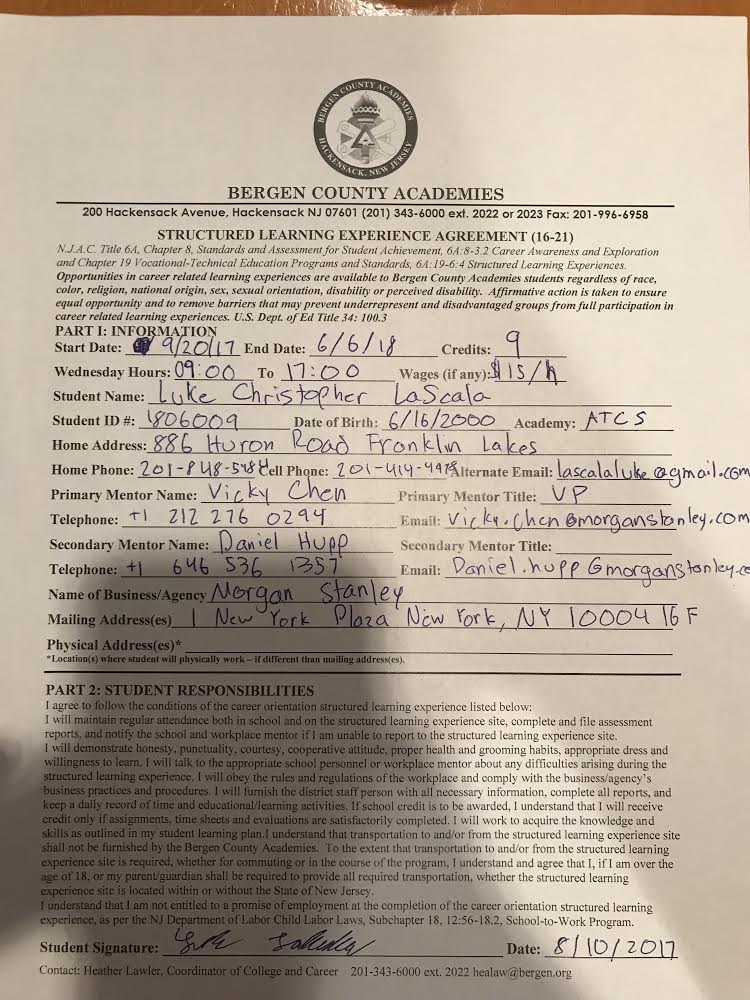 BERGEN COUNTY ACADEMIES
HACKENSACK, NEW JERSEY
BERGEN COUNTY ACADEMIES
200 Hackensack Avenue, Hackensack NJ 07601 (201) 343-6000 ext. 2022 or 2023 Fax: 201-996-6958
STRUCTURED LEARNING EXPERIENCE AGREEMENT (16-21)
N.J.A.C. Title 6A, Chapter 8, Standards and Assessment for Student Achievement, 6A:8-3.2 Career Awareness and Exploration
and Chapter 19 Vocational-Technical Education Programs and Standards, 6A:19-6:4 Structured Learning Experiences.
Opportunities in career related learning experiences are available to Bergen County Academies students regardless of race,
color, religion, national origin, sex, sexual orientation, disability or perceived disability. Affirmative action is taken to ensure
equal opportunity and to remove barriers that may prevent underrepresent and disadvantaged groups from full participation in
career related learning experiences. U.S. Dept. of Ed Title 34: 100.3
PART I: INFORMATION
Start Date: 9/20/17 End Date: 6/6/18 Credits: 9
Wednesday Hours: 09:00 To 17:00 Wages (if any): $15/h
Student Name: Luke Christopher LaScala
Student ID #: 1806009 Date of Birth: 6/16/2000 Academy: ATCS
Home Address: 886 Huron Road Franklin Lakes
Home Phone: 201-848-5484 Cell Phone: 201-414-4978 Alternate Email: lascalaluke@gmail.com
Primary Mentor Name: Vicky Chen Primary Mentor Title: VP
Telephone: +1 212 276 0294 Email: Vicky.Chen@morganstanley.com
Secondary Mentor Name: Daniel Hupp Secondary Mentor Title:
Telephone: +1 646 536 1357 Email: Daniel.hupp@morganstanley.co
Name of Business/Agency Morgan Stanley
Mailing Address(es) 1 New York Plaza New York, NY 10004 16 F
Physical Address(es)*
*Location(s) where student will physically work – if different than mailing address(es).
PART 2: STUDENT RESPONSIBILITIES
I agree to follow the conditions of the career orientation structured learning experience listed below:
I will maintain regular attendance both in school and on the structured learning experience site, complete and file assessment
reports, and notify the school and workplace mentor if I am unable to report to the structured learning experience site.
I will demonstrate honesty, punctuality, courtesy, cooperative attitude, proper health and grooming habits, appropriate dress and
willingness to learn. I will talk to the appropriate school personnel or workplace mentor about any difficulties arising during the
structured learning experience. I will obey the rules and regulations of the workplace and comply with the business/agency's
business practices and procedures. I will furnish the district staff person with all necessary information, complete all reports, and
keep a daily record of time and educational/learning activities. If school credit is to be awarded, I understand that I will receive
credit only if assignments, time sheets and evaluations are satisfactorily completed. I will work to acquire the knowledge and
skills as outlined in my student learning plan.I understand that transportation to and/or from the structured learning experience site
shall not be furnished by the Bergen County Academies. To the extent that transportation to and/or from the structured learning
experience site is required, whether for commuting or in the course of the program, I understand and agree that I, if I am over the
age of 18, or my parent/guardian shall be required to provide all required transportation, whether the structured learning
experience site is located within or without the State of New Jersey.
I understand that I am not entitled to a promise of employment at the completion of the career orientation structured learning
experience, as per the NJ Department of Labor Child Labor Laws, Subchapter 18, 12:56-18.2, School-to-Work Program.
Student Signature: Date: 8/10/2017
Contact: Heather Lawler, Coordinator of College and Career 201-343-6000 ext. 2022 healaw@bergen.org